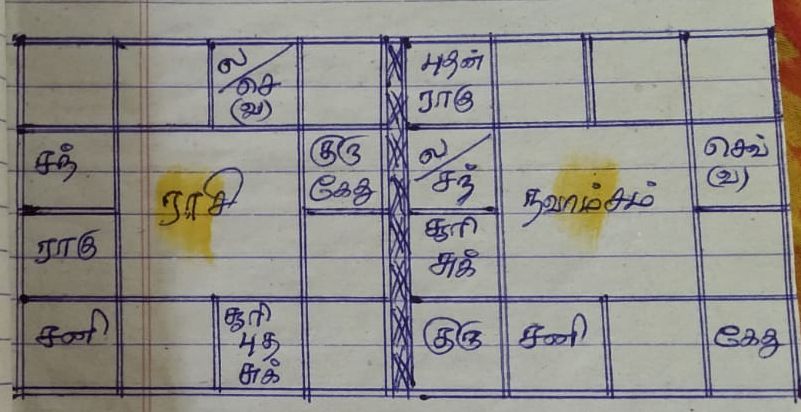 ல
செ
(வ)
சந்
ராசி
குரு
கேது
ராகு
சனி
சூரி
புத
சுக்
புதன்
ராகு
ல
சந்
நவாம்சம்
செவ்
(வ)
சூரி
சுக்
குரு
சனி
கேது